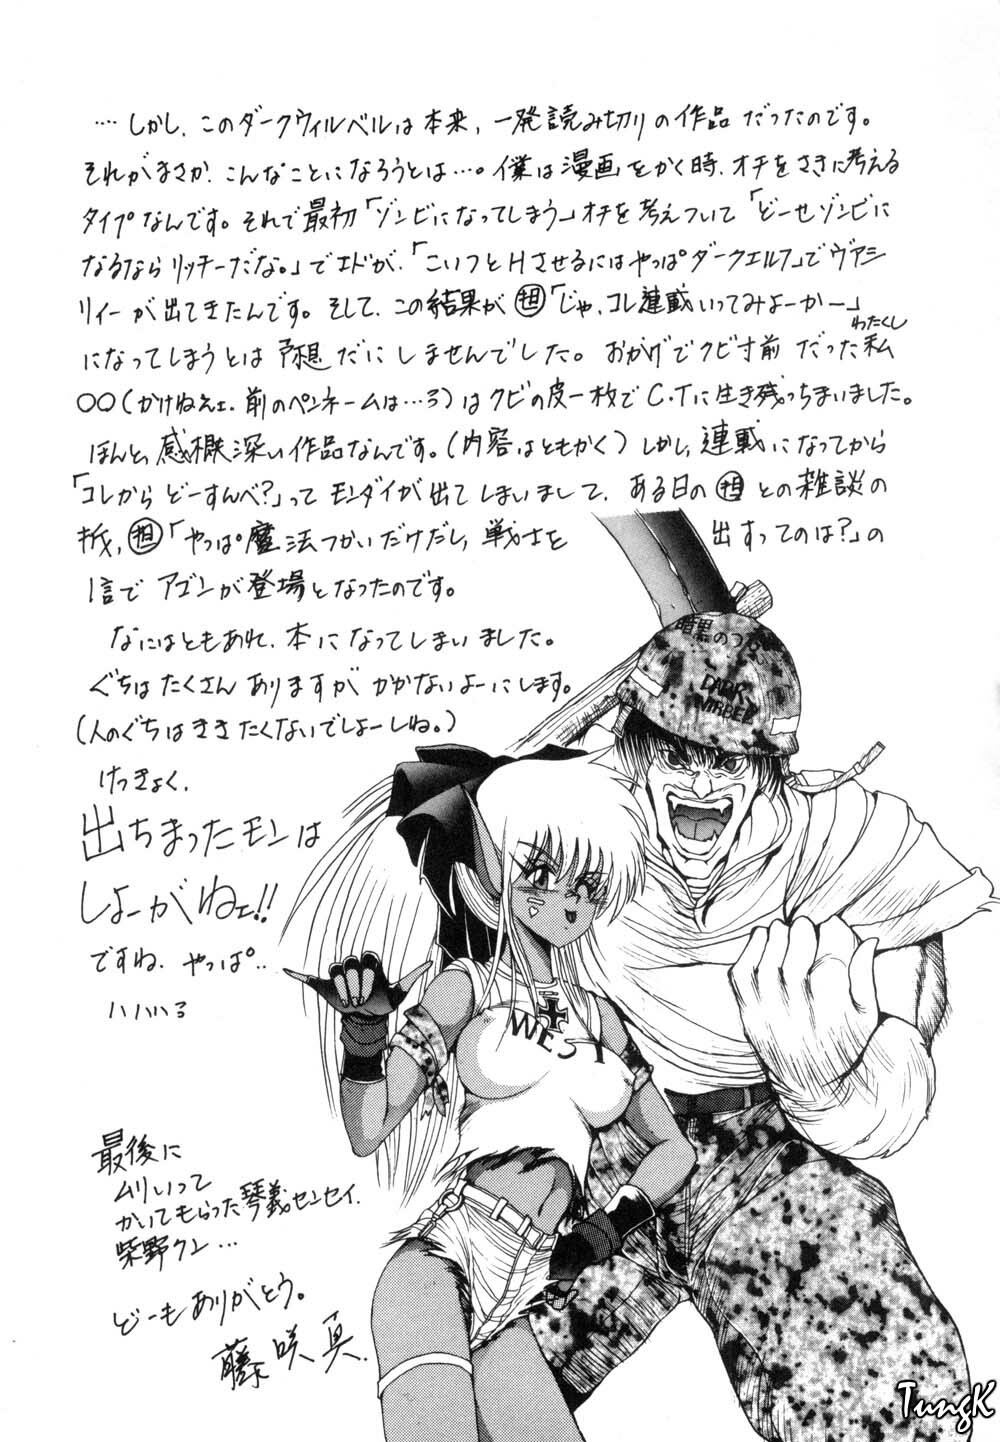 …しかし、このダークウィルベルは本来、一発読み切りの作品だったのです。
それがまさか、こんなことになろうとは…。僕は漫画をかく時、オチをさきに考える
タイプなんです。それで最初「ゾンビになってしまう」オチを考えついて「どーせゾンビに
なるならリッチーだな。」でエドが、「こいつとHさせるにはやっぱダークエルフ」でヴァシ
リィーが出てきたんです。そして、この結果が㊥「じゃ、コレ連載いってみよーかー」
わたくし
になってしまうとは予想だにしませんでした。おかげでクビ寸前だった私
○○(かけねぇェ、前のペンネームは…ろ)はクビの皮一枚でC.Tに生き残っちまいました。
ほんと、感概深い作品なんです。(内容はともかく)しかし、連載になってから
「コレからどーすんべ?」ってモンダイが出てしまいまして、ある日の担との雑談の
折、担「やっぱ魔法つかいだけだし、戦士を出すってのは?」の
1言でアゴンが登場となったのです。
なにはともあれ、本になってしまいました。
ぐちはたくさんありますがかかないよーにします。
(人のぐちはききたくないでしょーしね。)
けっきょく、
出ちまったモンは
しょーがねェ!!
ですね、やっぱ..
ハハハろ
暗黒のつ
DARK
WIRBEL
WEST
最後に
ムリいって
かいてもらった琴義センセイ、
柴野クン…
どーもありがとう。
藤咲真
TungK